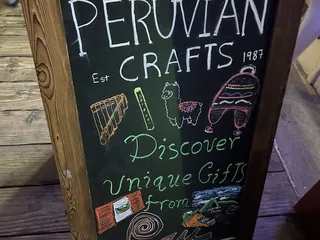 PERUVIAN
CRAFTS
Est 1987
Discover
unique Gifts
from